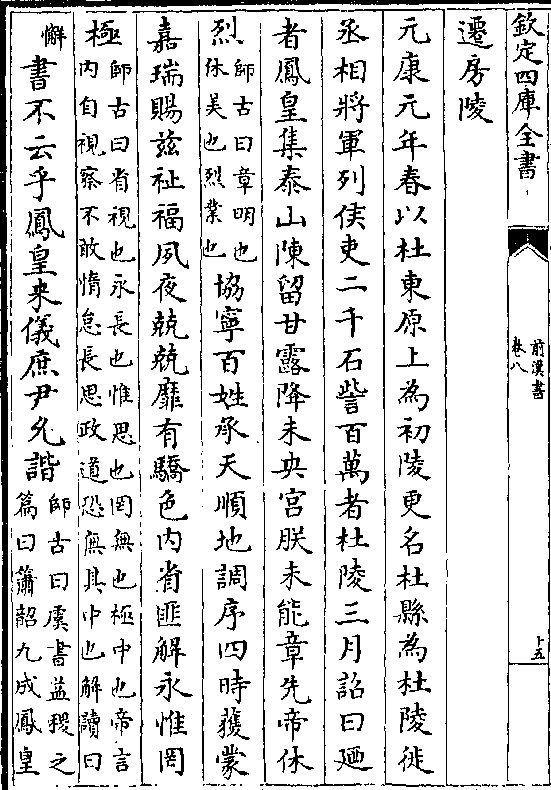 欽定四庫全書
前漢書
卷八
十五
遷房陵
元康元年春以杜東原上為初陵更名杜縣為杜陵徙
丞相將軍列侯吏二千石訾百萬者杜陵三月詔曰廼
者鳳皇集泰山陳留甘露降未央宮朕未能章先帝休
烈
師古曰章明也
休美也烈業也
協寧百姓承天順地調序四時獲蒙
嘉瑞賜茲祉福夙夜兢兢靡有驕色內省匪解永惟罔
極
師古曰省視也永長也惟思也罔無也極中也帝言
內自視察不敢惰怠長思政道恐無其中也解讀曰
懈
書不云乎鳳皇來儀庶尹允諧
師古曰虞書益稷之
篇曰簫韶九成鳳皇